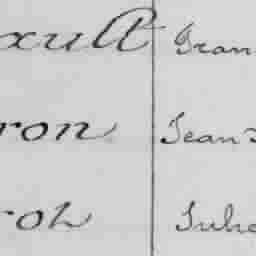 xult Fran
ron Jean
roh Julie